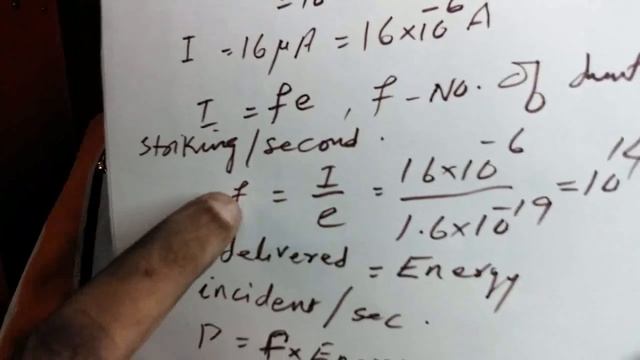 I = 16μA = 16×10⁻⁶ A
I = fe, f – No. of
striking/second.
f = I/e = 16×10⁻⁶/1.6×10⁻¹⁹ = 10¹⁴
delivered = Energy
incident/sec.
P = f×